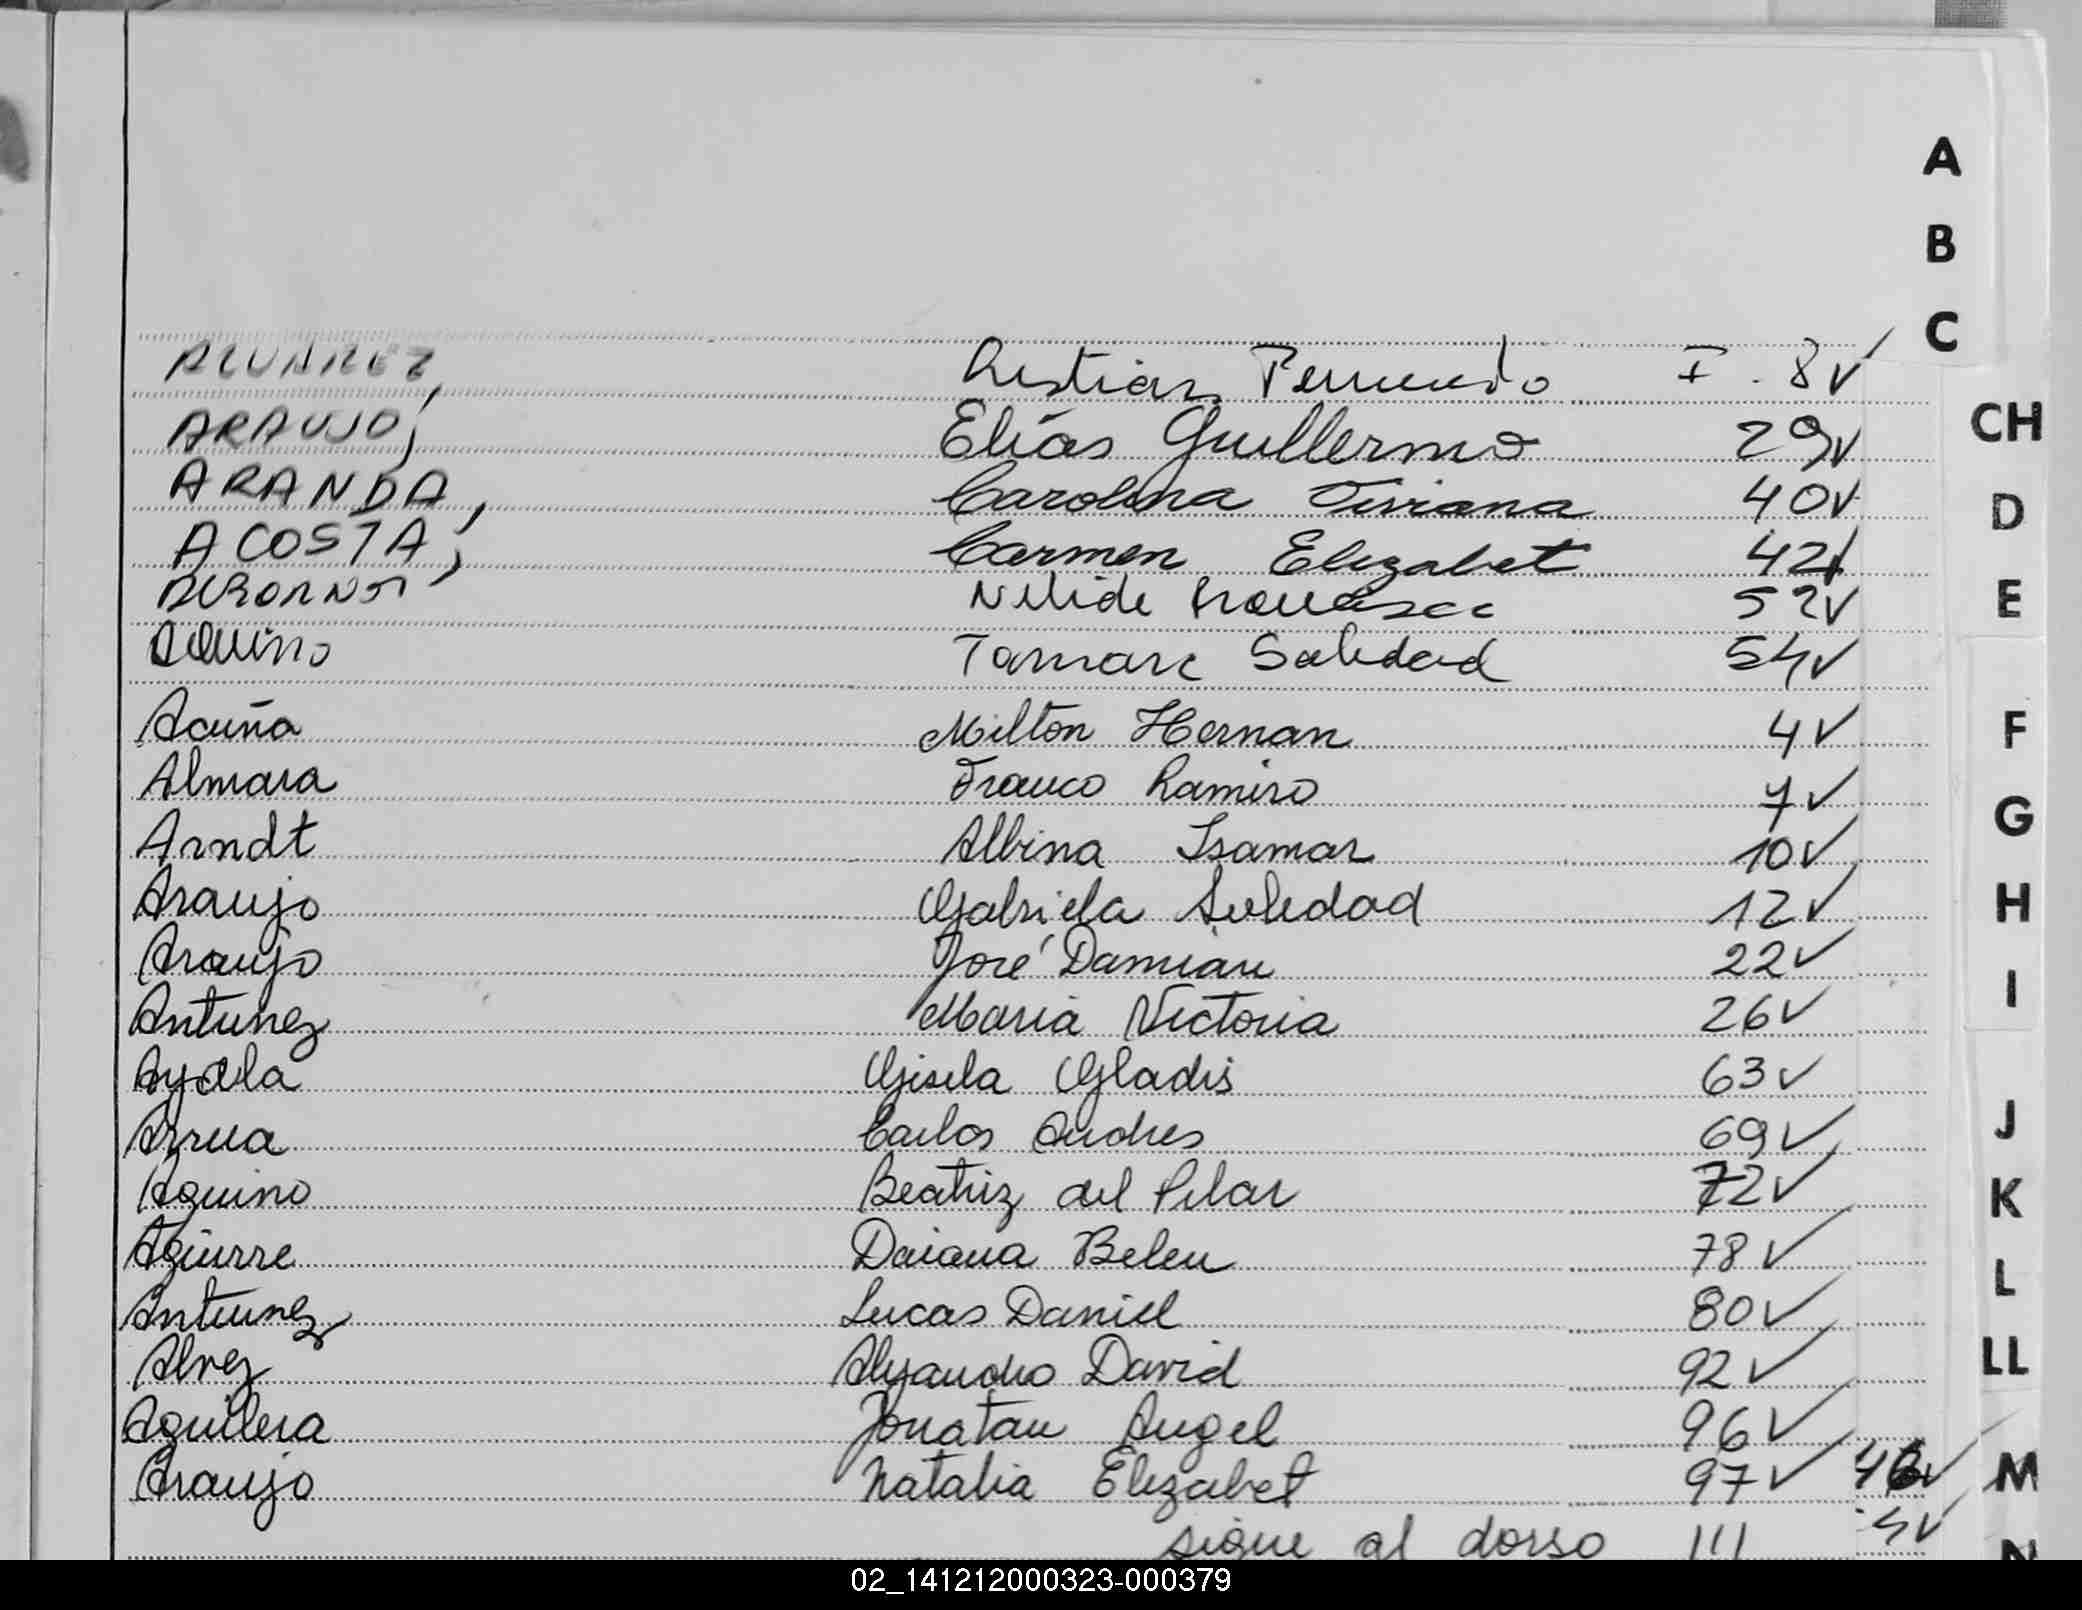 A
B
C
CH
D
E
F
G
H
I
J
K
L
LL
M
N
ALVAREZ, Cristian Fernando F. 8✓
ARAUJO, Elías Guillermo 29✓
ARANDA, Carolina Viviana 40✓
ACOSTA, Carmen Elizabet 42✓
Nelide 52✓
Aquino Tamara Soledad 54✓
Acuña Milton Hernan 4✓
Almara Franco Ramiro 7✓
Arndt Albina Isamar 10✓
Araujo Gabriela Soledad 12✓
Araujo José Damian 22✓
Antunez Maria Victoria 26✓
Ayala Gisela Gladis 63✓
Arrua Carlos Andres 69✓
Aquino Beatriz del Pilar 72✓
Aguirre Daiana Belen 78✓
Antunez Lucas Daniel 80✓
Alvez Alejandro David 92✓
Aguilera Jonatan Angel 96✓
Araujo Natalia Elizabet 97✓
sigue al dorso ///
02_141212000323-000379